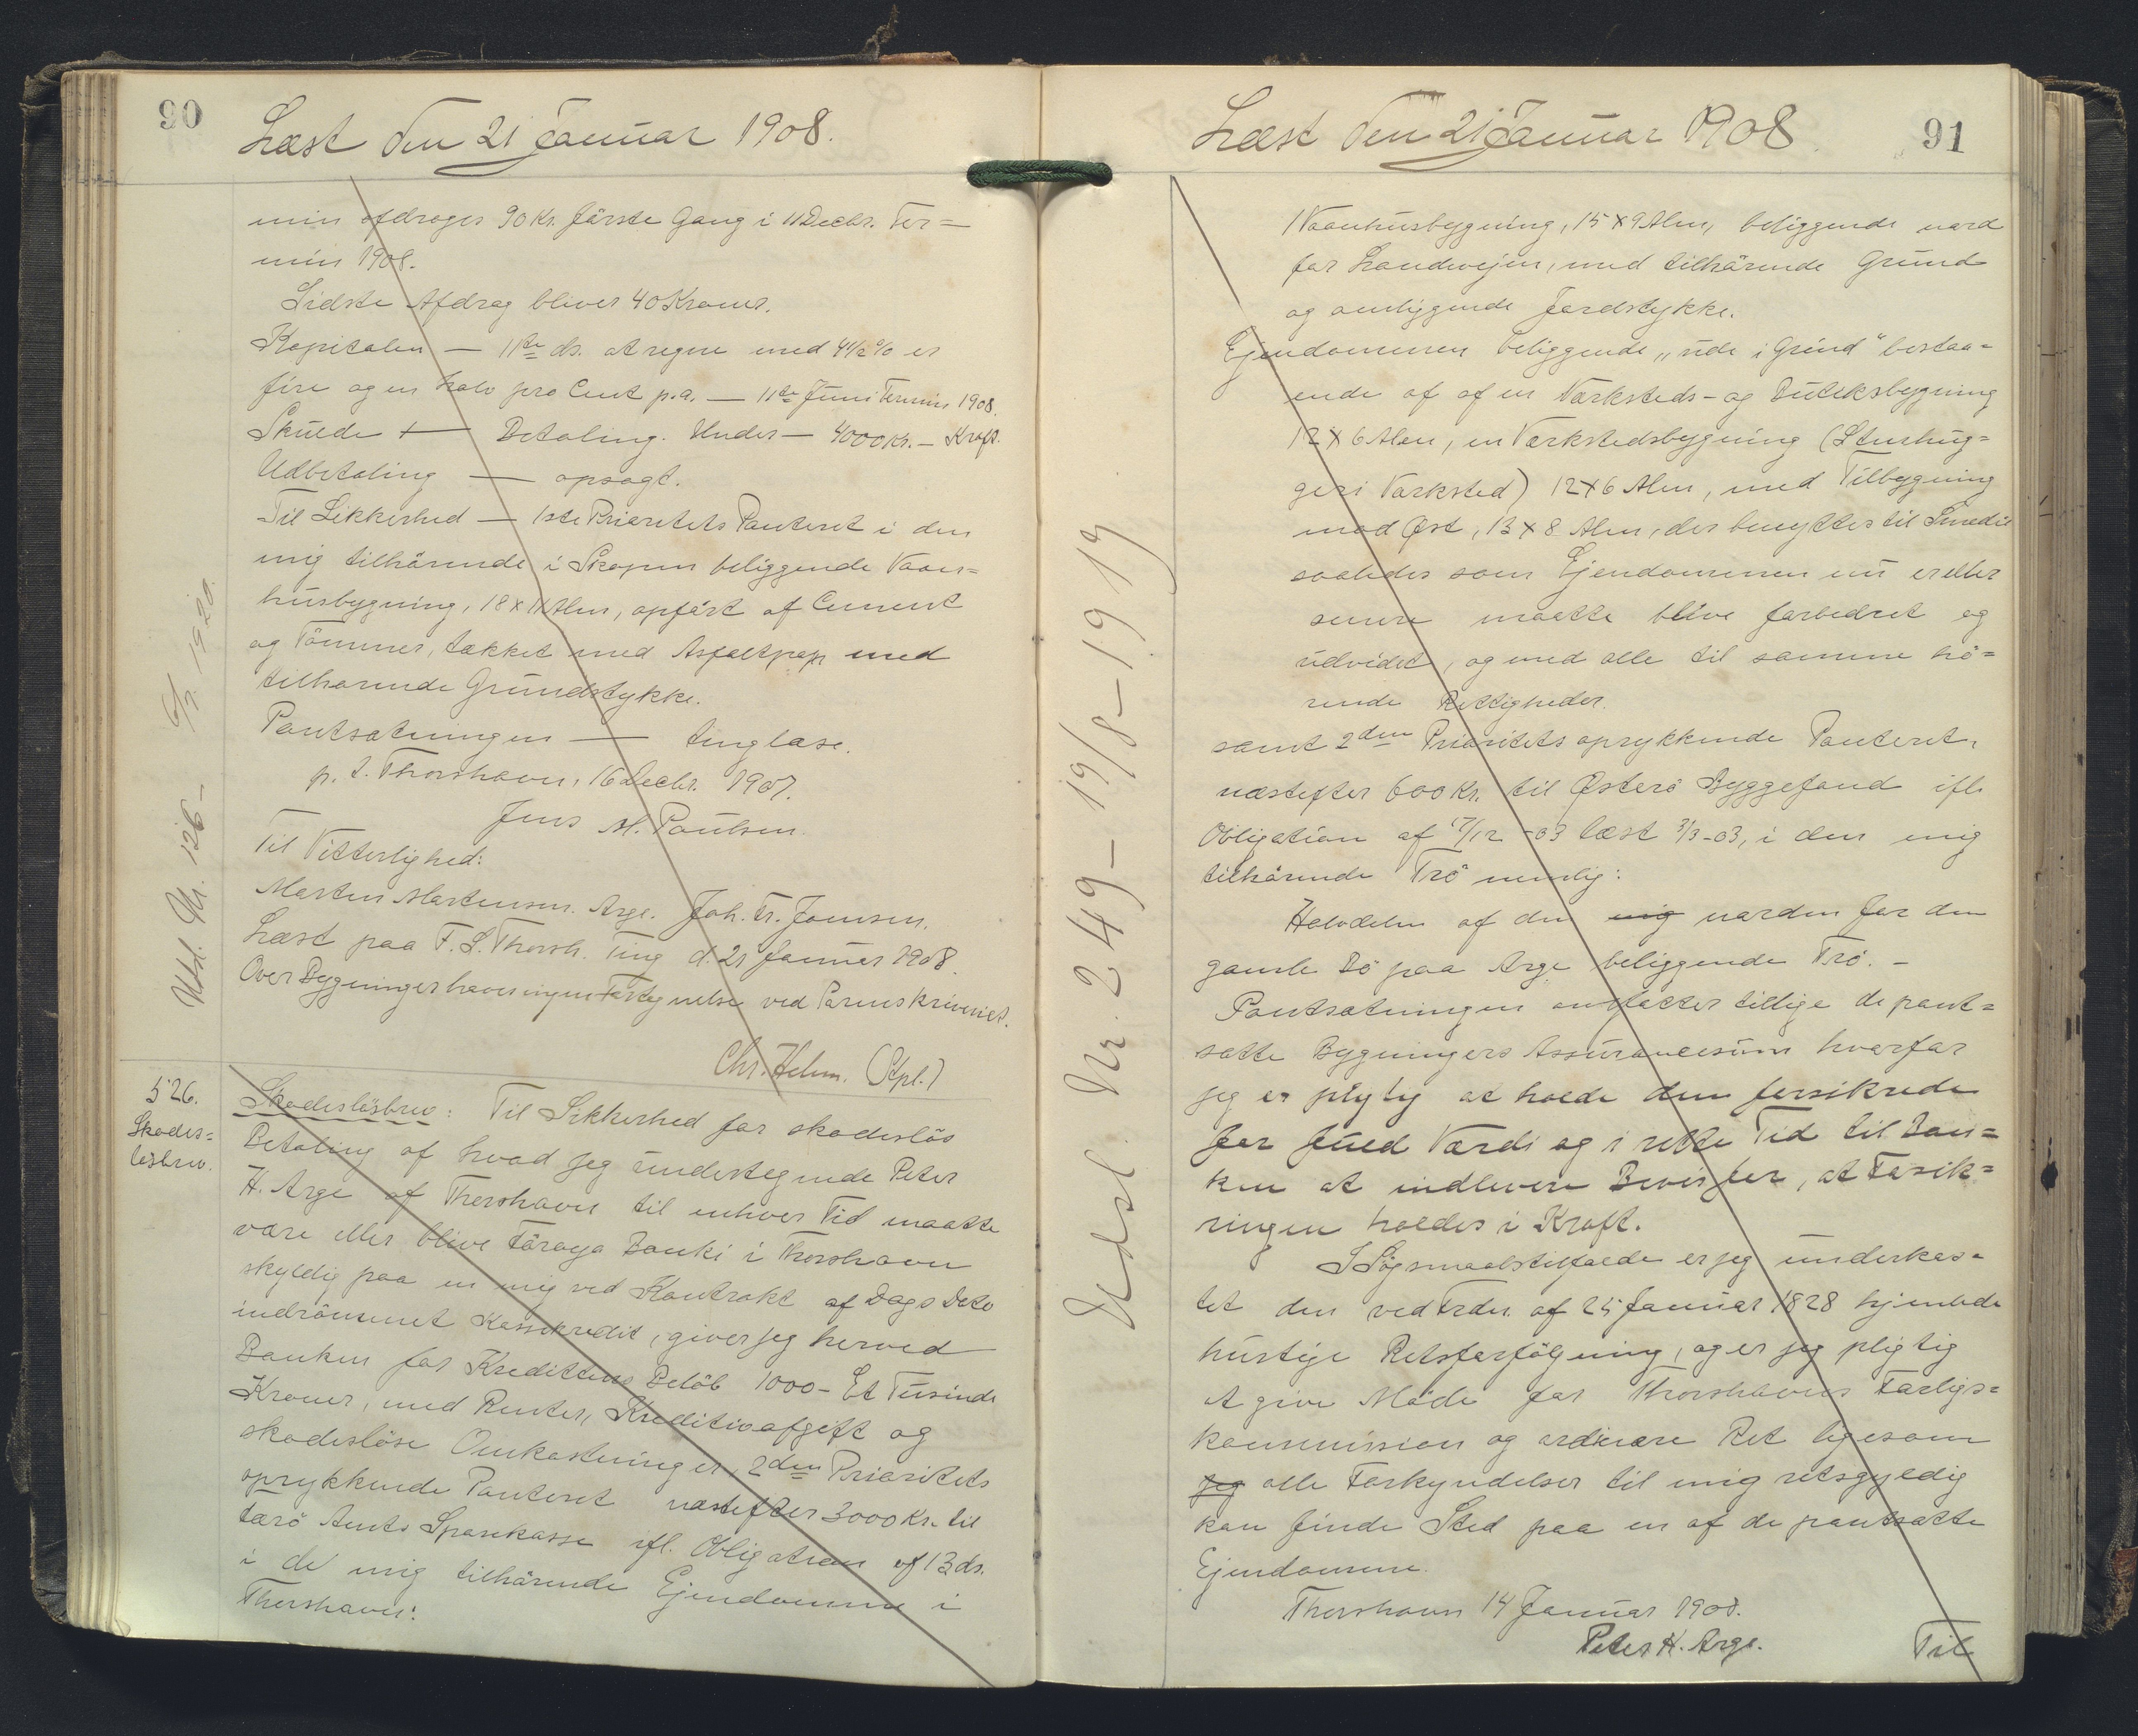 90
Læst den 21 Januar 1908.
min afdrages 90 Kr. første Gang i 11 Decbr. Ter=
min 1908.
Sidste Afdrag bliver 40 Kroner.
Kapitalen — 11te ds. at regne med 4 1/2 % er
fire og en halv pro Cent p.a. — 11te Juni Termin 1908.
Skulde — Betaling. Under — 4000 Kr. — Kraft.
Udbetaling — opsagt.
Til Sikkerhed — 1ste Prioritets Panteret i den
mig tilhørende i Skopun beliggende Vaan=
husbygning, 18 x 11 Alen, opført af Cement
og Tømmer, takket med Asfaltpap med
tilhørende Grundstykke.
Pantsætningen — tinglæse.
p. t. Thorshavn, 16 Decbr. 1907.
Jens M. Poulsen.
Til Vitterlighed:
Morten Mortensen. Arge. Joh. Fr. Joensen.
Læst paa F. S. Thorsh. Ting d. 21 Januar 1908.
Over Bygningerhaves ingen Fortegnelse ved Panteskriveriet.
Chr. Helm. (Stpl.)
Udsl. Nr. 126 — 6/7. 1920.
526.
Skades=
løsbrev.
Skadesløsbrev: Til Sikkerhed for skadesløs
Betaling af hvad jeg undertegnede Peter
H. Arge af Thorshavn til enhver Tid maatte
være eller blive Føroya Banki i Thorshavn
skyldig paa en mig ved Kontrakt af Dags Dato
indrømmet Kassekredit, giver jeg herved
Banken for Kredittens Beløb 1000 – Et Tusinde
Kroner, med Renter, Kreditivafgift og
skadesløse Omkostninger, 2den Prioritets
oprykkende Panteret næstefter 3000 Kr. til
Færø Amts Sparekasse ifl. Obligation af 13 ds.
i de mig tilhørende Ejendomme i
Thorshavn:
Læst den 21 Januar 1908
91
1 Vaanhusbygning, 15 x 9 Alen, beliggende nord
for Landevejen, med tilhørende Grund
og omliggende Jordstykke.
Ejendommen beliggende „ude i Grind“ bestaa=
ende af af en Værksteds- og Butiksbygning
12 x 6 Alen, en Værkstedsbygning (Stenhug=
geri Værksted) 12 x 6 Alen, med Tilbygning
mod Øst, 13 x 8 Alen, der benyttes til Smedie
saaledes som Ejendommen nu er eller
senere maatte blive forbedret og
udvidet, og med alle til samme hø=
rende Rettigheder.
samt 2den Prioritets oprykkende Panteret,
næstefter 600 Kr. til Østerø Byggefond ifl.
Obligation af 17/12 -03 læst 3/3 -03, i den mig
tilhørende Trø nemlig:
Halvdelen af den mig norden for den
gamle Bø paa Arge beliggende Trø. –
Pantsætningen omfatter tillige de pant=
satte Bygningers Assurancesum hvorfor
jeg er pligtig at holde dem forsikrede
for fuld Værdi og i rette Tid til Ban=
ken at indlevere Bevis for, at Fosik=
ringen holdes i Kraft.
I Søgsmaalstilfælde er jeg underkas=
tet den ved Frdn. af 25 Januar 1828 hjemlede
hurtige Retsforfølgning, og er jeg pligtig
at give Møde for Thorshavns Forligs=
kommission og ordinære Ret ligesom
jeg alle Forkyndelser til mig retsgyldig
kan finde Sted paa en af de pantsatte
Ejendomme.
Thorshavn 14 Januar 1908.
Peter H. Arge.
Til
Udsl. Nr. 249 – 19/8 – 1919